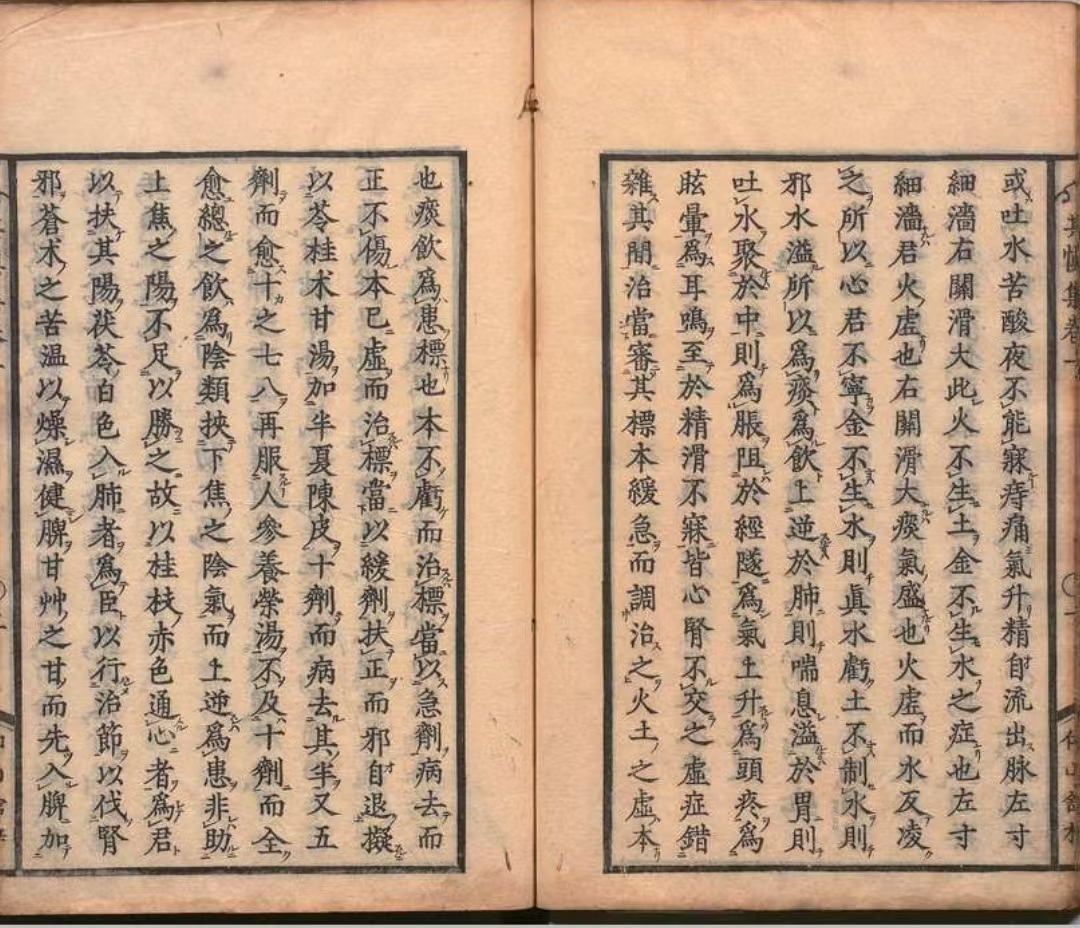 或吐水苦酸夜不能寐痔痛氣升精自流出脉左寸
細濇右關滑大此火不生土金不生水之症也左寸
細濇君火虛也右關滑大痰氣盛也火虛而水反凌
之所以心君不寧金不生水則眞水虧土不制水則
邪水溢所以爲痰爲飲上逆於肺則喘息溢於胃則
吐水聚於中則爲脹阻於經隧爲氣上升爲頭疼爲
眩暈爲耳鳴至於精滑不寐皆心腎不交之虛症錯
雜其間治當審其標本緩急而調治之火土之虛本
也痰飲爲患標也本不虧而治標當以急劑病去而
正不傷本已虛而治標當以緩劑扶正而邪自退擬
以苓桂术甘湯加半夏陳皮十劑而病去其半又五
劑而愈十之七八再服人參養榮湯不及十劑而全
愈總之飲爲陰類挾下焦之陰氣而上逆爲患非助
上焦之陽不足以勝之故以桂枝赤色通心者爲君
以扶其陽茯苓白色入肺者爲臣以行治節以伐腎
邪蒼术之苦溫以燥濕健脾甘艸之甘而先入脾加